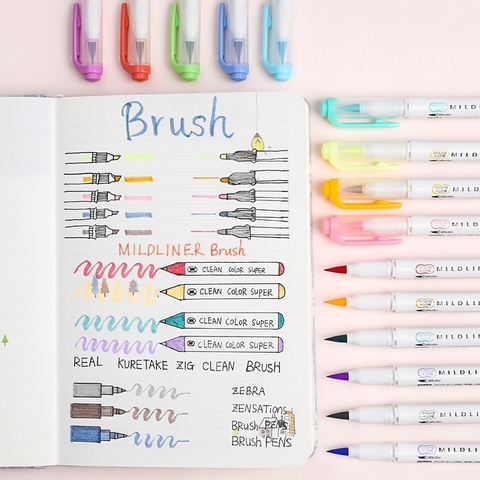 Brush
MILDLINER Brush
CLEAN COLOR SUPER
CLEAN COLOR SUPER
CLEAN COLOR SUPER
CLEAN COLOR SUPER
REAL KURETAKE ZIG CLEAN BRUSH
ZEBRA
ZENSATIONS
Brush PENS
Brush PENS
MILDLI
MILDLIN
MILDLIN
MILDLIN
MILDLIN
MILDLIN
MILDLIN
MILDLIN
MILDLINE
MILDLINE